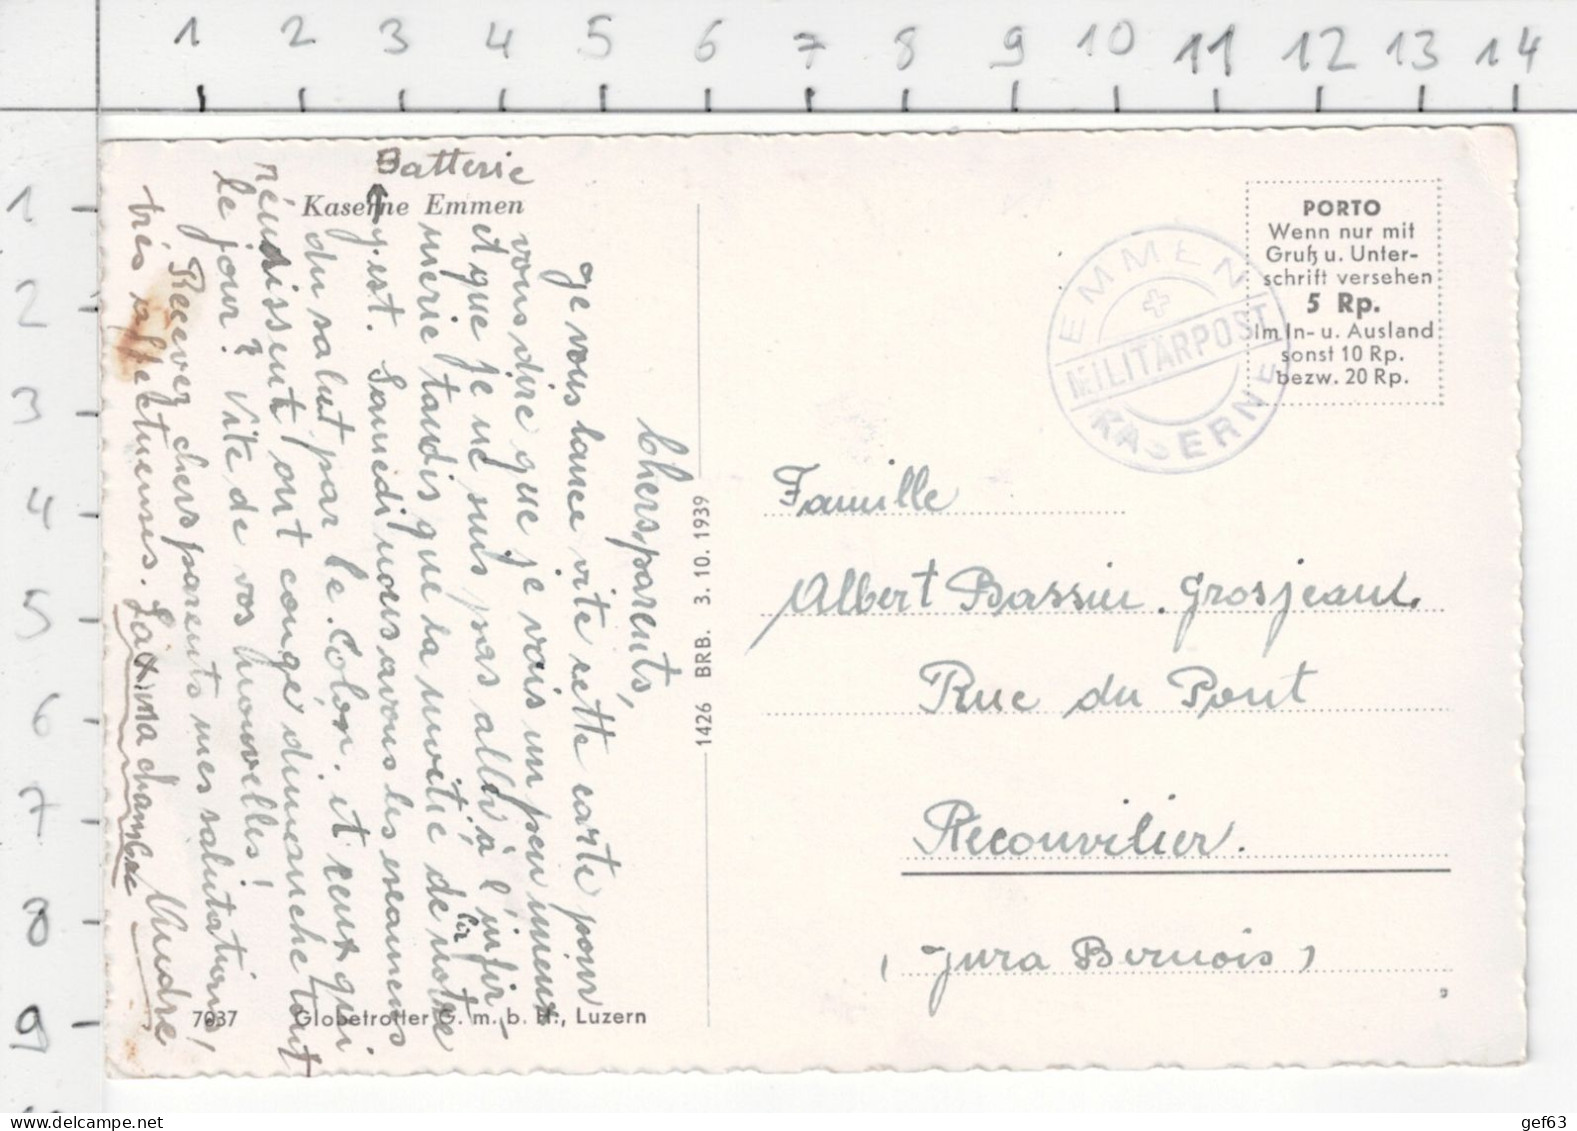 1 2 3 4 5 6 7 8 9 10 11 12 13 14
1
2
3
4
5
6
7
8
9
Kaserne Emmen
Chers parents,
Je vous lance vite cette carte pour
vous dire que je vais un peu mieux
et que je ne suis pas allé à l'infir-
merie tandis que la moitié de notre
Batterie
y est. Samedi nous avons les examens
du salut par le Colon. et ceux qui
réussissent ont congé dimanche tout
le jour! Vite de vos nouvelles!
Recevez chers parents mes salutations
très affectueuses. André
La ma chambre
7037 Globetrotter G. m. b. H., Luzern
1426 BRB. 3. 10. 1939
EMMEN
MILITÄRPOST
KASERNE
PORTO
Wenn nur mit
Gruß u. Unter-
schrift versehen
5 Rp.
Im In- u. Ausland
sonst 10 Rp.
bezw. 20 Rp.
Famille
Albert Bassin. Grosjean.
Rue du Pont
Reconvilier.
(Jura Bernois)
9
www.delcampe.net
gef63